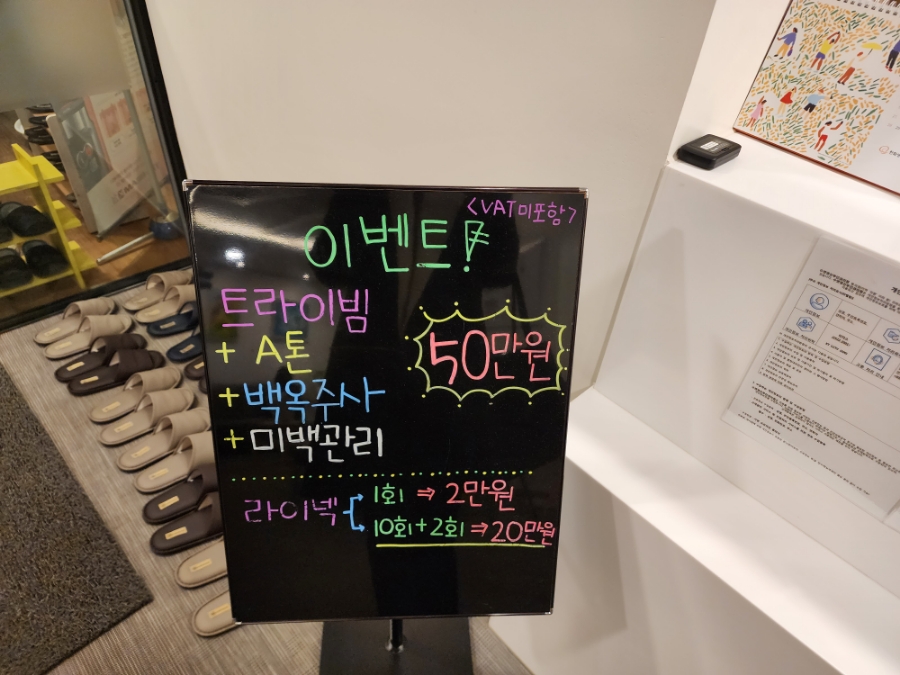 <VAT미포함>
이벤트!
트라이빔
+ A톤
+ 백옥주사
+ 미백관리
50만원
라이넥
1회 ⇒ 2만원
10회+2회 ⇒ 20만원